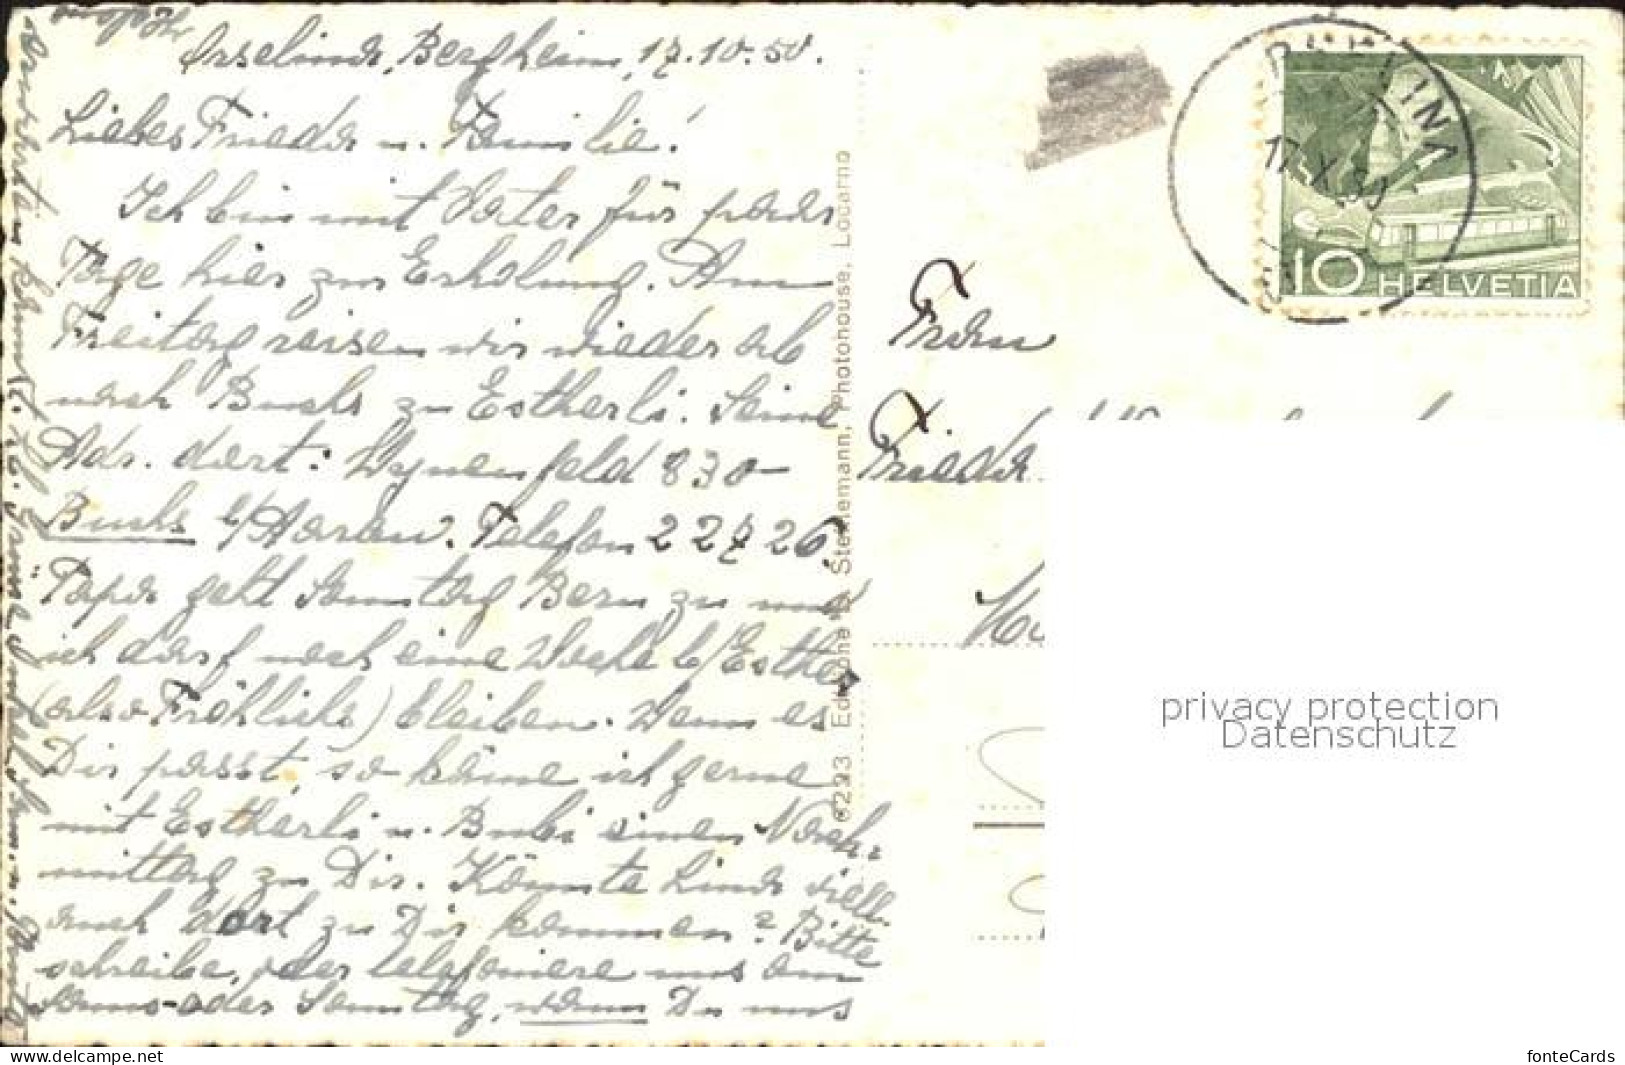 Orselina, Bergheim, 17.10.50.
Liebes Frieda u. Familie!
Ich bin mit Vater für paar
Tage hier zur Erholung. Am
Freitag reisen wir wieder ab
nach Buchs zu Estherli. Seine
Adr. dort: Wynenfeld 830
Buchs b/Aarau. Telefon 2 27 26.
Papa geht Samstag Bern zu und
ich darf noch eine Woche b/Esther
(also Fröhlichs) bleiben. Wenn es
Dir passt, so käme ich gerne
mit Estherli u. Bubi einen Nach-
mittag zu Dir. Könnte Linda viell.
auch dort zu Dir kommen? Bitte
schreibe, oder telefoniere uns am
oder Samstag, wann Du uns
6223 Edizione Steinemann, Photohouse, Locarno
17.X.50
10 HELVETIA
Frau
Frieda
privacy protection
Datenschutz
www.delcampe.net
fonteCards